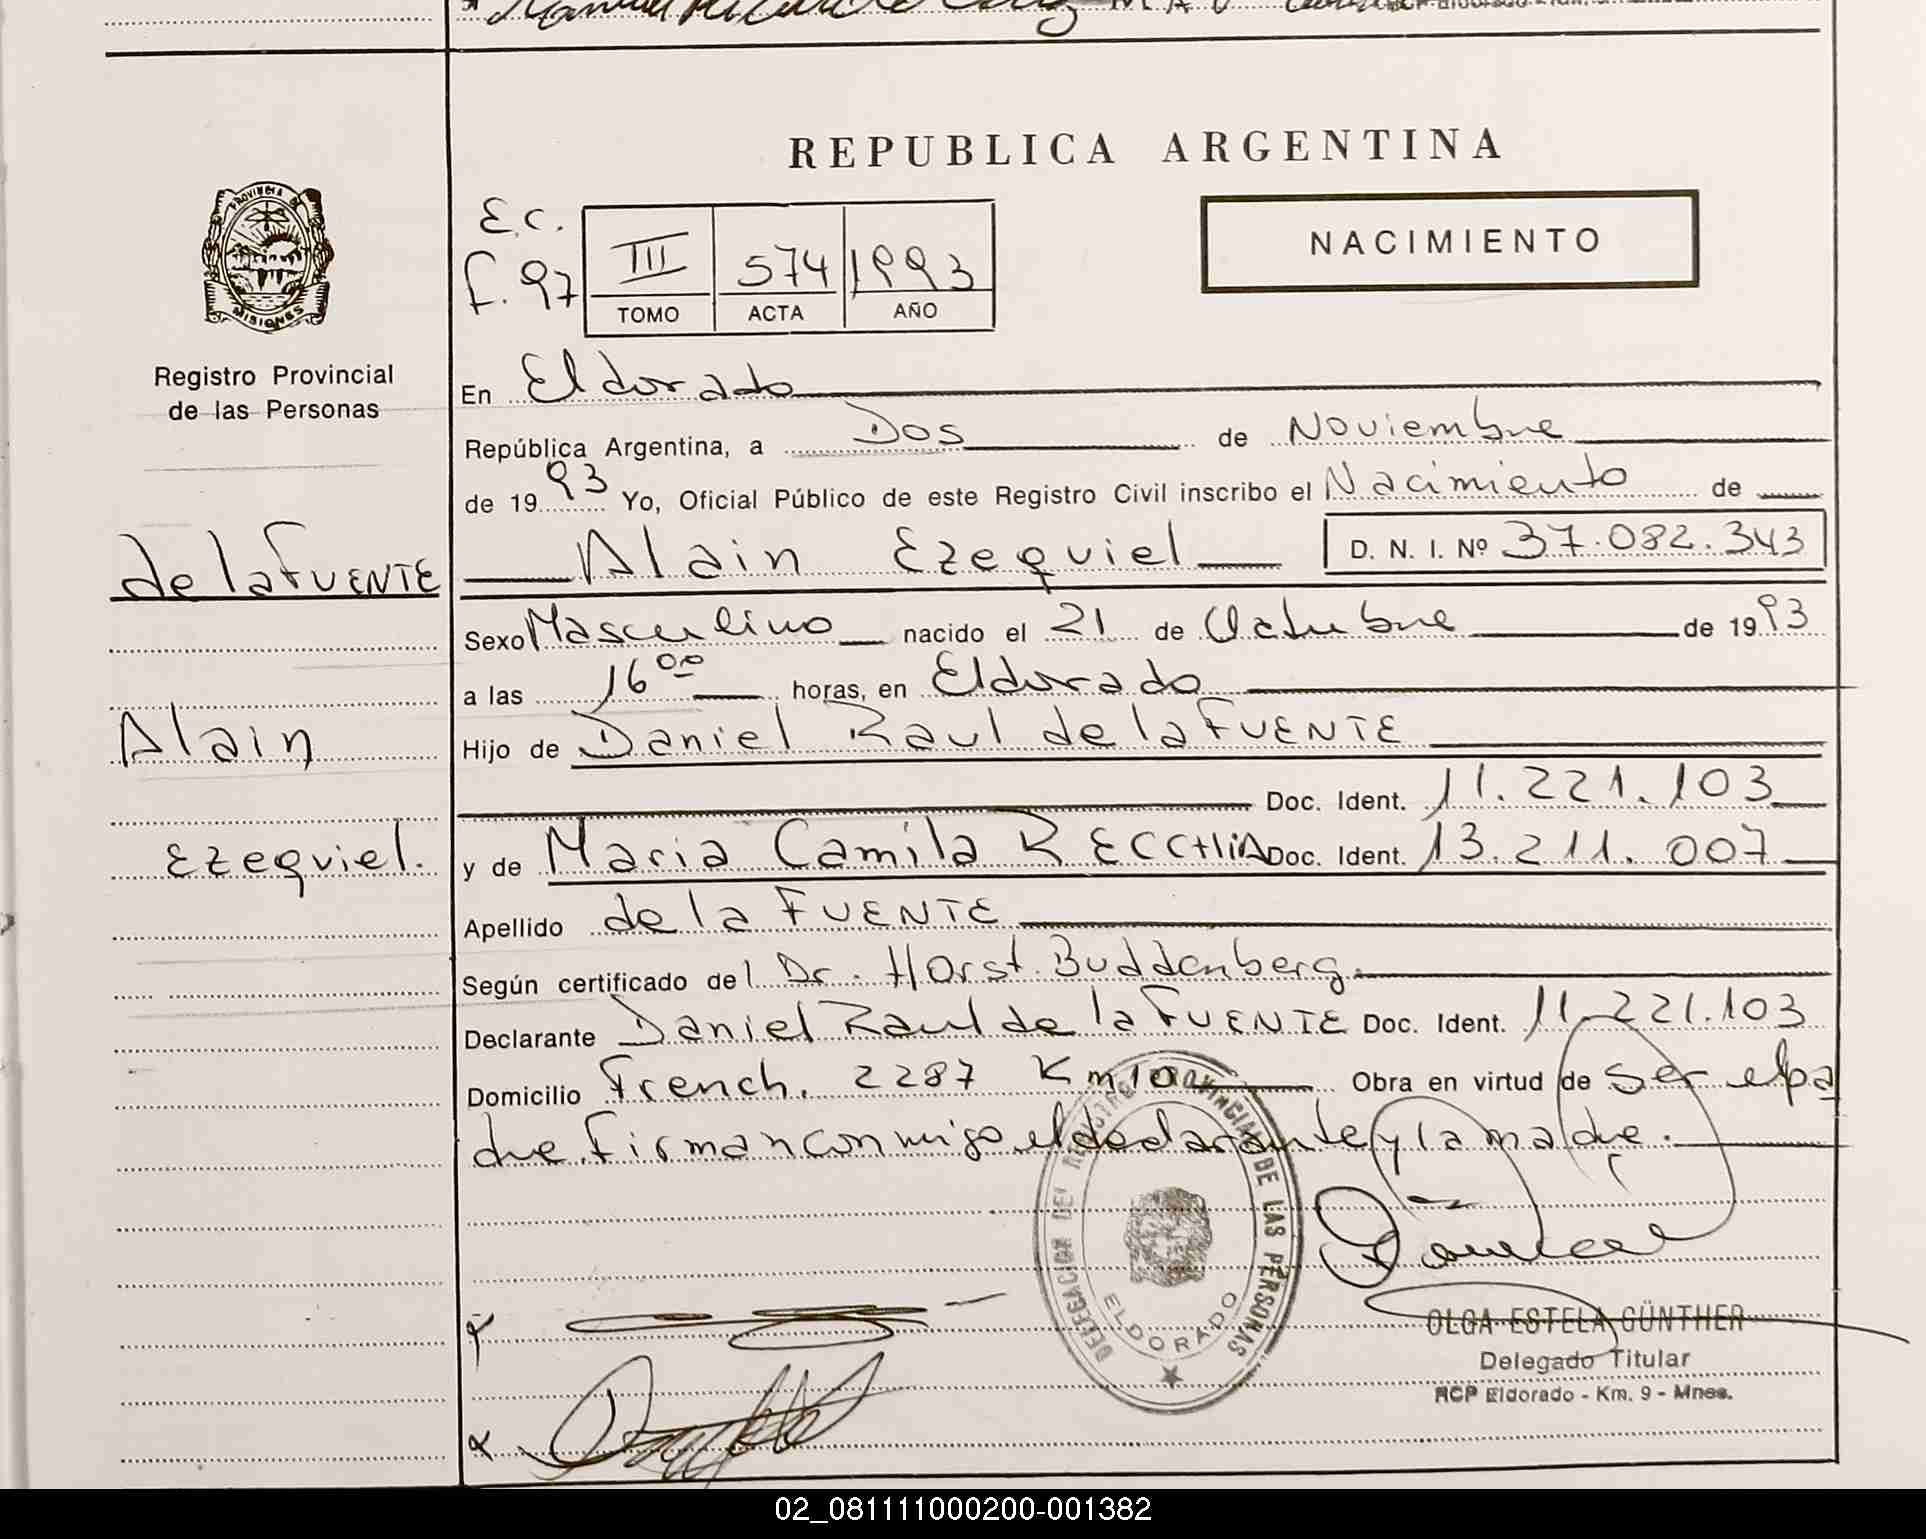 REPUBLICA ARGENTINA
PROVINCIA DE
MISIONES
Registro Provincial
de las Personas
E.C.
F. 97
III 574 1993
TOMO ACTA AÑO
NACIMIENTO
En Eldorado
República Argentina, a Dos de Noviembre
de 1993 Yo, Oficial Público de este Registro Civil inscribo el Nacimiento de
de la FUENTE
Alain Ezequiel D. N. I. Nº 37.082.343
Sexo Masculino nacido el 21 de Octubre de 1993
a las 16 00 horas, en Eldorado
Alain
Hijo de Daniel Raul de la FUENTE
Doc. Ident. 11.221.103
Ezequiel.
y de Maria Camila RECCHIA Doc. Ident. 13.211.007
Apellido de la FUENTE
Según certificado del Dr. Horst Buddenberg
Declarante Daniel Raul de la FUENTE Doc. Ident. 11.221.103
Domicilio French. 2287 Km 10 Obra en virtud de ser el pa
dre. Firman conmigo el declarante y la madre.
DELEGACION DEL REGISTRO PROVINCIAL DE LAS PERSONAS
ELDORADO
OLGA ESTELA GÜNTHER
Delegado Titular
RCP Eldorado - Km. 9 - Mnes.
02_081111000200-001382